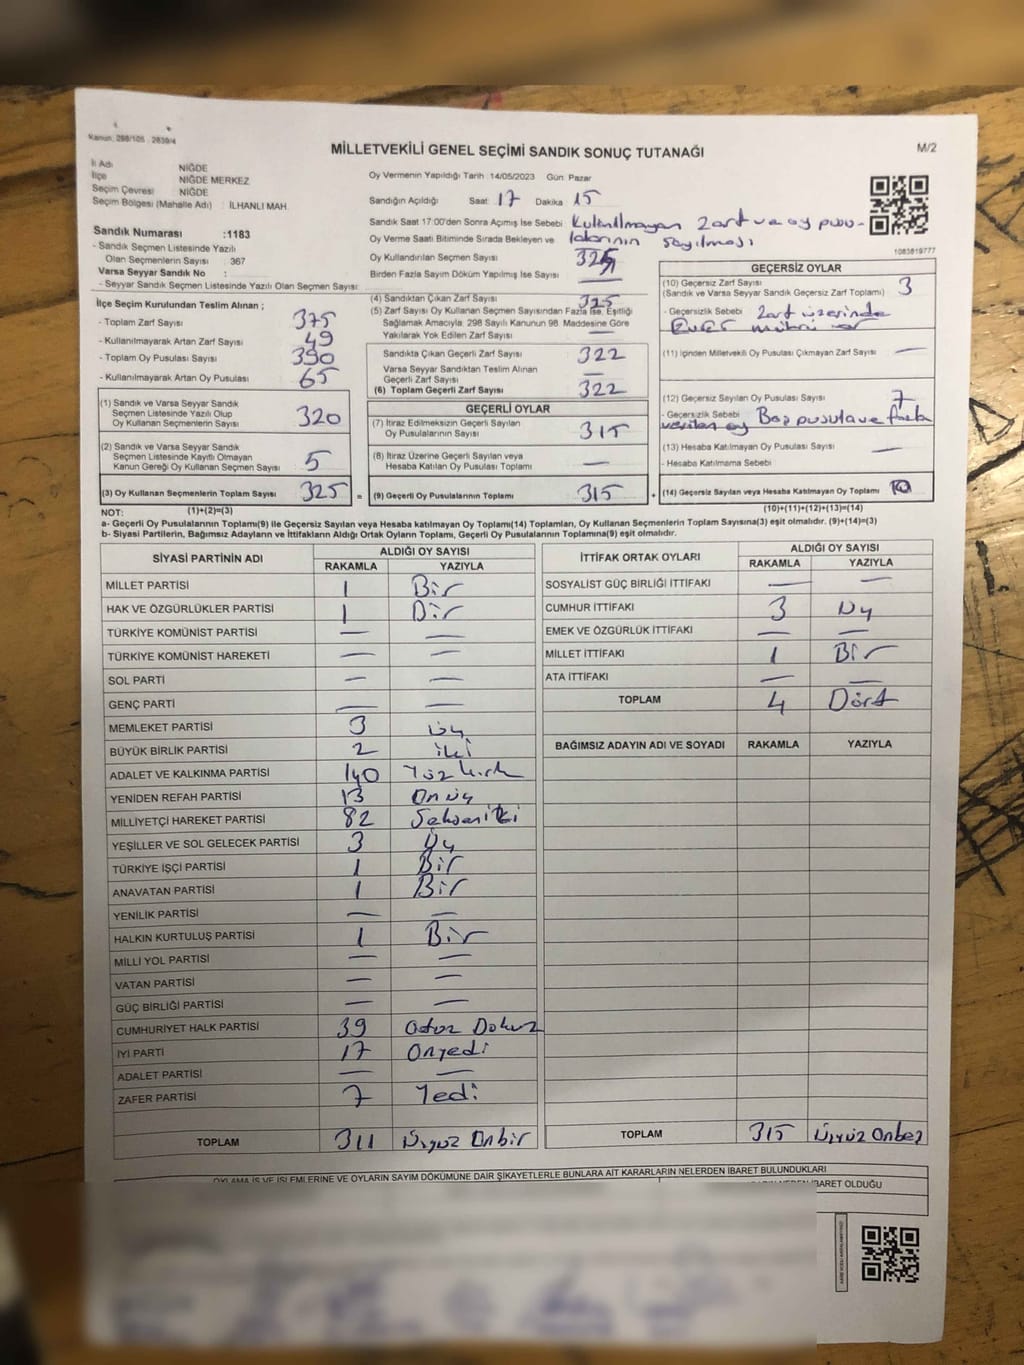 Kanun: 298/105 - 2839/4
MİLLETVEKİLİ GENEL SEÇİMİ SANDIK SONUÇ TUTANAĞI
M/2
İl Adı NİĞDE
İlçe NİĞDE MERKEZ
Seçim Çevresi NİĞDE
Seçim Bölgesi (Mahalle Adı) : İLHANLI MAH.
Sandık Numarası :1183
- Sandık Seçmen Listesinde Yazılı
Olan Seçmenlerin Sayısı : 367
Varsa Seyyar Sandık No :
- Seyyar Sandık Seçmen Listesinde Yazılı Olan Seçmen Sayısı:
Oy Vermenin Yapıldığı Tarih 14/05/2023 Gün Pazar
Sandığın Açıldığı Saat 17 Dakika 15
Sandık Saat 17:00'den Sonra Açılmış İse Sebebi Kullanılmayan zarf ve oy pusu-
Oy Verme Saati Bitiminde Sırada Bekleyen ve lalarının sayılması
Oy Kullandırılan Seçmen Sayısı
Birden Fazla Sayım Döküm Yapılmış İse Sayısı —
1083819777
İlçe Seçim Kurulundan Teslim Alınan ;
- Toplam Zarf Sayısı 375
- Kullanılmayarak Artan Zarf Sayısı 49
- Toplam Oy Pusulası Sayısı 390
- Kullanılmayarak Artan Oy Pusulası 65
(1) Sandık ve Varsa Seyyar Sandık
Seçmen Listesinde Yazılı Olup
Oy Kullanan Seçmenlerin Sayısı 320
(2) Sandık ve Varsa Seyyar Sandık
Seçmen Listesinde Kayıtlı Olmayan
Kanun Gereği Oy Kullanan Seçmen Sayısı 5
(3) Oy Kullanan Seçmenlerin Toplam Sayısı 325 =
(4) Sandıktan Çıkan Zarf Sayısı 325
(5) Zarf Sayısı Oy Kullanan Seçmen Sayısından Fazla İse, Eşitliği
Sağlamak Amacıyla, 298 Sayılı Kanunun 98. Maddesine Göre
Yakılarak Yok Edilen Zarf Sayısı —
Sandıkta Çıkan Geçerli Zarf Sayısı 322
Varsa Seyyar Sandıktan Teslim Alınan
Geçerli Zarf Sayısı —
(6) Toplam Geçerli Zarf Sayısı 322
GEÇERLİ OYLAR
(7) İtiraz Edilmeksizin Geçerli Sayılan
Oy Pusulalarının Sayısı 315
(8) İtiraz Üzerine Geçerli Sayılan veya
Hesaba Katılan Oy Pusulası Toplamı —
(9) Geçerli Oy Pusulalarının Toplamı 315 +
GEÇERSİZ OYLAR
(10) Geçersiz Zarf Sayısı 3
(Sandık ve Varsa Seyyar Sandık Geçersiz Zarf Toplamı)
- Geçersizlik Sebebi zarf üzerinde
Evet mührü var
(11) İçinden Milletvekili Oy Pusulası Çıkmayan Zarf Sayısı —
(12) Geçersiz Sayılan Oy Pusulası Sayısı 7
- Geçersizlik Sebebi Boş pusula ve fazla
verilen oy
(13) Hesaba Katılmayan Oy Pusulası Sayısı —
- Hesaba Katılmama Sebebi
(14) Geçersiz Sayılan veya Hesaba Katılmayan Oy Toplamı 10
NOT: (1)+(2)=(3) (10)+(11)+(12)+(13)=(14)
a- Geçerli Oy Pusulalarının Toplamı(9) ile Geçersiz Sayılan veya Hesaba katılmayan Oy Toplamı(14) Toplamları, Oy Kullanan Seçmenlerin Toplam Sayısına(3) eşit olmalıdır. (9)+(14)=(3)
b- Siyasi Partilerin, Bağımsız Adayların ve İttifakların Aldığı Ortak Oyların Toplamı, Geçerli Oy Pusulalarının Toplamına(9) eşit olmalıdır.
SİYASİ PARTİNİN ADI ALDIĞI OY SAYISI
RAKAMLA YAZIYLA
MİLLET PARTİSİ 1 Bir
HAK VE ÖZGÜRLÜKLER PARTİSİ 1 Bir
TÜRKİYE KOMÜNİST PARTİSİ — —
TÜRKİYE KOMÜNİST HAREKETİ — —
SOL PARTİ — —
GENÇ PARTİ — —
MEMLEKET PARTİSİ 3 üç
BÜYÜK BİRLİK PARTİSİ 2 iki
ADALET VE KALKINMA PARTİSİ 140 Yüz kırk
YENİDEN REFAH PARTİSİ 13 Onüç
MİLLİYETÇİ HAREKET PARTİSİ 82 Seksen iki
YEŞİLLER VE SOL GELECEK PARTİSİ 3 Üç
TÜRKİYE İŞÇİ PARTİSİ 1 Bir
ANAVATAN PARTİSİ 1 Bir
YENİLİK PARTİSİ — —
HALKIN KURTULUŞ PARTİSİ 1 Bir
MİLLİ YOL PARTİSİ — —
VATAN PARTİSİ — —
GÜÇ BİRLİĞİ PARTİSİ — —
CUMHURİYET HALK PARTİSİ 39 Otuz Dokuz
İYİ PARTİ 17 Onyedi
ADALET PARTİSİ — —
ZAFER PARTİSİ 7 Yedi
TOPLAM 311 Üçyüz Onbir
İTTİFAK ORTAK OYLARI ALDIĞI OY SAYISI
RAKAMLA YAZIYLA
SOSYALİST GÜÇ BİRLİĞİ İTTİFAKI — —
CUMHUR İTTİFAKI 3 Üç
EMEK VE ÖZGÜRLÜK İTTİFAKI — —
MİLLET İTTİFAKI 1 Bir
ATA İTTİFAKI — —
TOPLAM 4 Dört
BAĞIMSIZ ADAYIN ADI VE SOYADI RAKAMLA YAZIYLA
TOPLAM 315 Üçyüz Onbeş
OYLAMA İŞ VE İŞLEMLERİNE VE OYLARIN SAYIM DÖKÜMÜNE DAİR ŞİKAYETLERLE BUNLARA AİT KARARLARIN NELERDEN İBARET BULUNDUKLARI
İBARET OLDUĞU